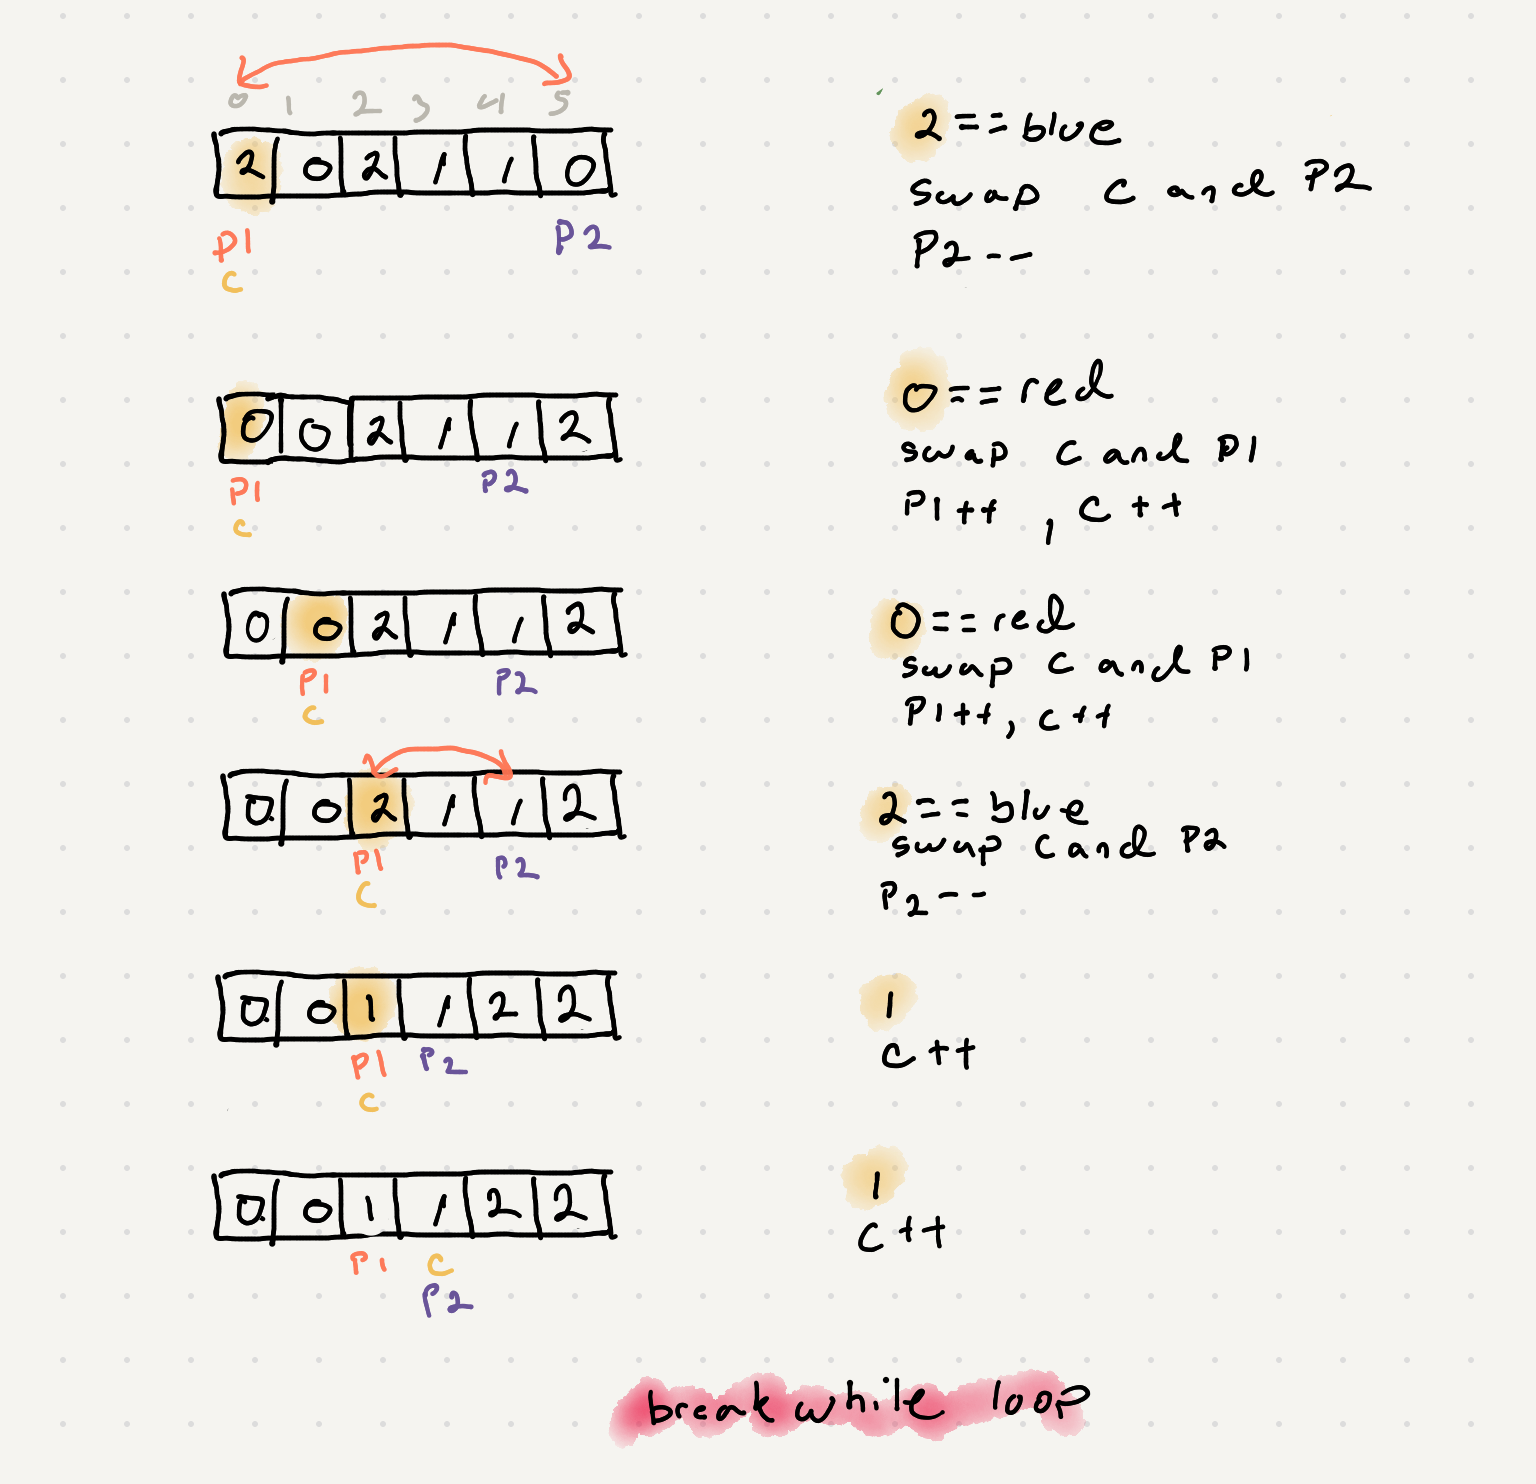 0 1 2 3 4 5
2 0 2 1 1 0
P1 P2
C
2 == blue
swap C and P2
P2 --
0 0 2 1 1 2
P1 P2
C
0 == red
swap C and P1
P1++ , C++
0 0 2 1 1 2
P1 P2
C
0 == red
swap C and P1
P1++, C++
0 0 2 1 1 2
P1 P2
C
2 == blue
swap C and P2
P2 --
0 0 1 1 2 2
P1 P2
C
1
C++
0 0 1 1 2 2
P1 C
P2
1
C++
break while loop